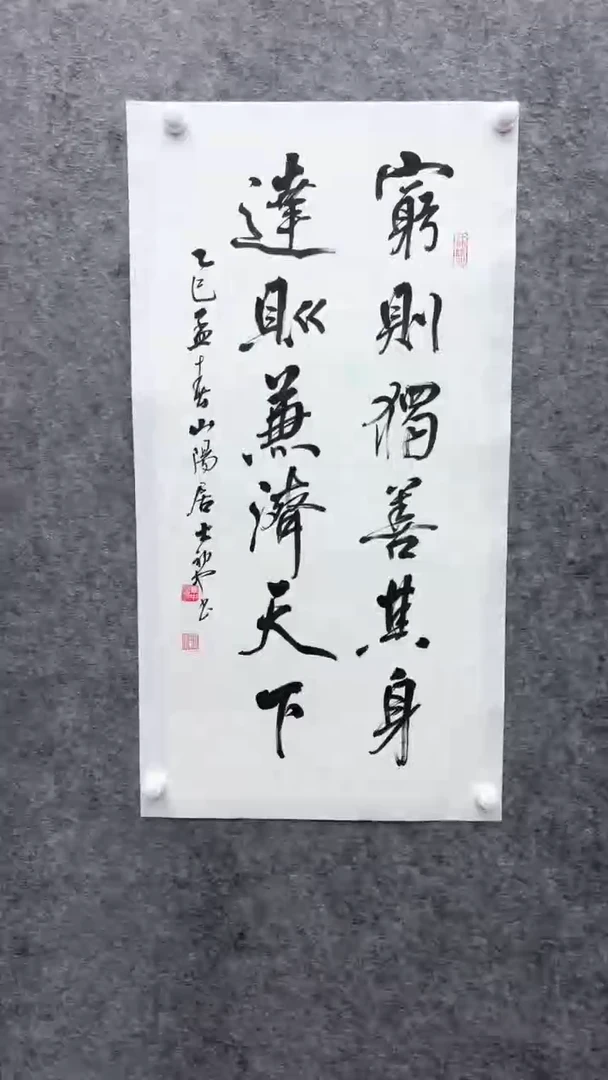 窮則獨善其身
達則兼濟天下
乙巳孟春山陽居士